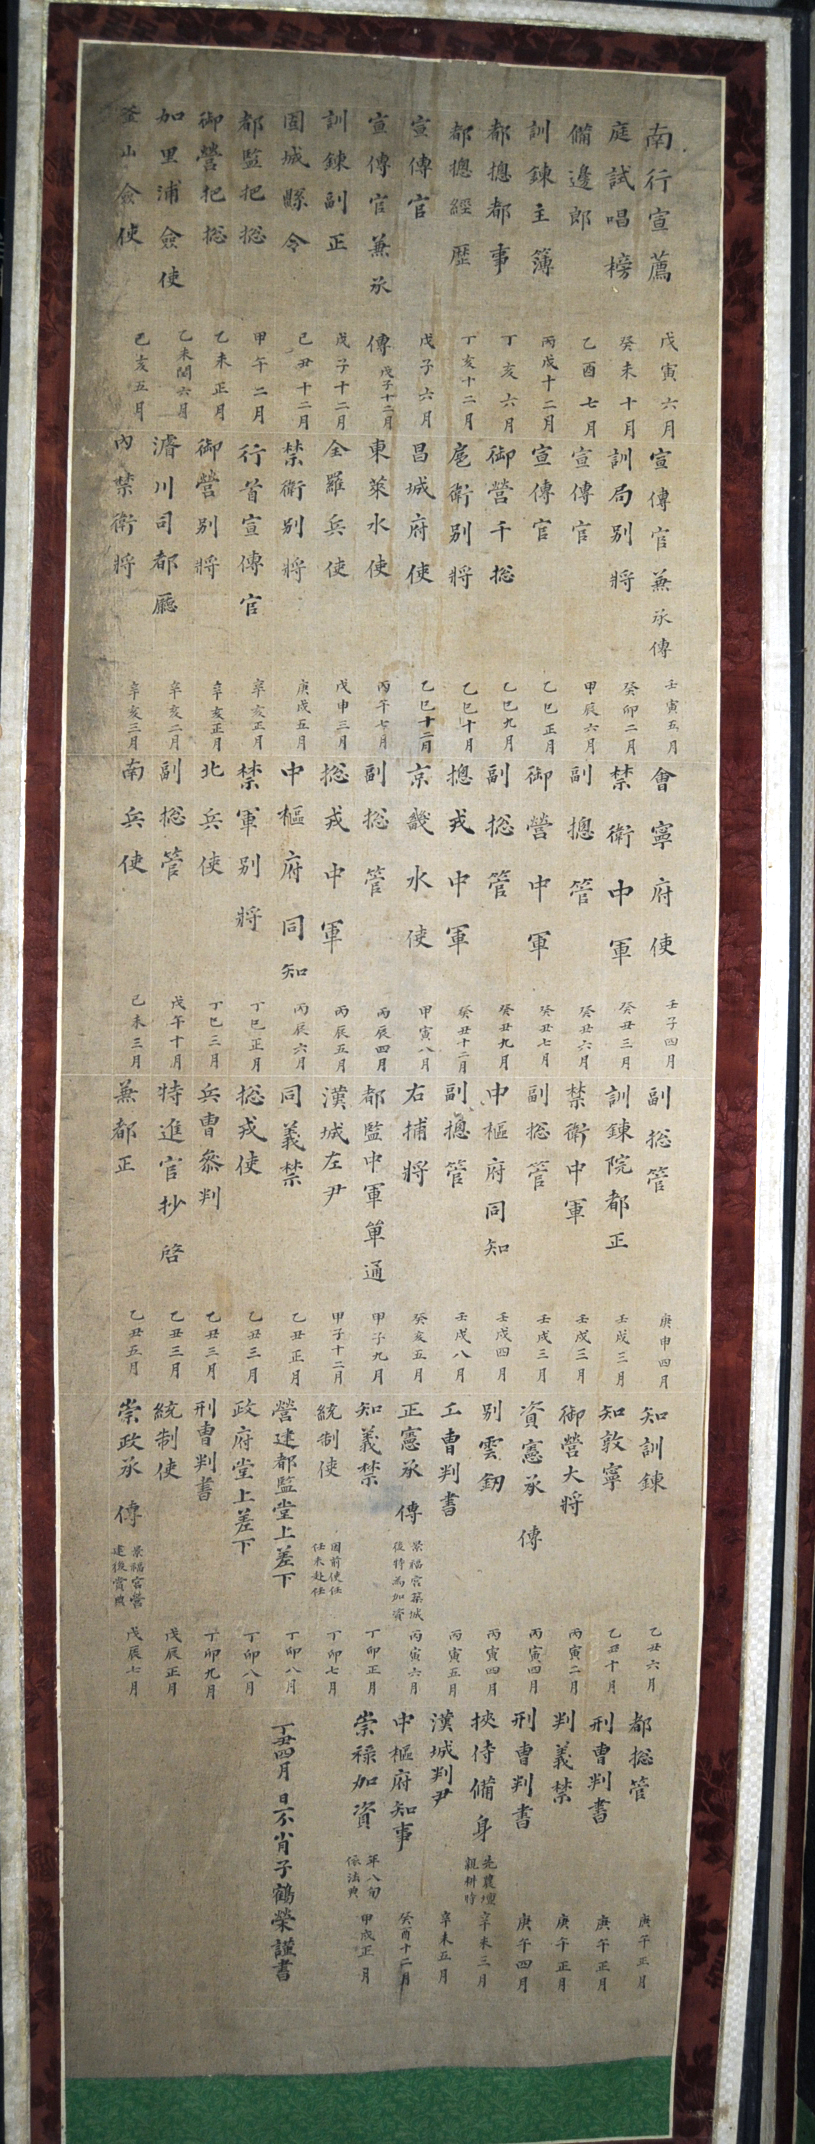 南行宣薦 戊寅六月
庭試唱榜 癸未十月
備邊郎 乙酉七月
訓鍊主簿 丙戌十二月
都摠都事 丁亥六月
都摠經歷 丁亥十二月
宣傳官 戊子六月
宣傳官兼承傳 戊子十二月
訓鍊副正 戊子十二月
固城縣令 己丑十二月
都監把摠 甲午二月
御營把摠 乙未正月
加里浦僉使 乙未閏六月
釜山僉使 己亥五月
宣傳官兼承傳 壬寅五月
訓局別將 癸卯二月
宣傳官 甲辰六月
宣傳官 乙巳正月
御營千摠 乙巳九月
扈衛別將 乙巳十月
昌城府使 乙巳十二月
東萊水使 丙午七月
全羅兵使 戊申三月
禁衛別將 庚戌五月
行首宣傳官 辛亥正月
御營別將 辛亥正月
濬川司都廳 辛亥二月
內禁衛將 辛亥三月
會寧府使 壬子四月
禁衛中軍 癸丑三月
副摠管 癸丑六月
御營中軍 癸丑七月
副摠管 癸丑九月
摠戎中軍 癸丑十二月
京畿水使 甲寅八月
副摠管 丙辰四月
摠戎中軍 丙辰五月
中樞府同知 丙辰六月
禁軍別將 丁巳正月
北兵使 丁巳三月
副摠管 戊午十月
南兵使 己未三月
副摠管 庚申四月
訓鍊院都正 壬戌三月
禁衛中軍 壬戌三月
副摠管 壬戌三月
中樞府同知 壬戌四月
副摠管 壬戌八月
右捕將 癸亥五月
都監中軍單通 甲子九月
漢城左尹 甲子十二月
同義禁 乙丑正月
摠戎使 乙丑三月
兵曹參判 乙丑三月
特進官抄啓 乙丑三月
兼都正 乙丑五月
知訓鍊 乙丑六月
知敦寧 乙丑十月
御營大將 丙寅二月
資憲承傳 丙寅四月
別雲釰 丙寅四月
工曹判書 丙寅五月
正憲承傳 景福宮築城後特爲加資 丙寅六月
知義禁 丁卯正月
統制使 因前使仕任未赴任 丁卯七月
營建都監堂上差下 丁卯八月
政府堂上差下 丁卯八月
刑曹判書 丁卯九月
統制使 戊辰正月
崇政承傳 景福宮營建後賞典 戊辰七月
都摠管 庚午正月
刑曹判書 庚午正月
判義禁 庚午正月
刑曹判書 庚午四月
挾侍備身 先農壇親耕時 辛未三月
漢城判尹 辛未五月
中樞府知事 癸酉十二月
崇祿加資 年八旬依法典 甲戌正月
丁丑四月 日不肖子鶴榮謹書